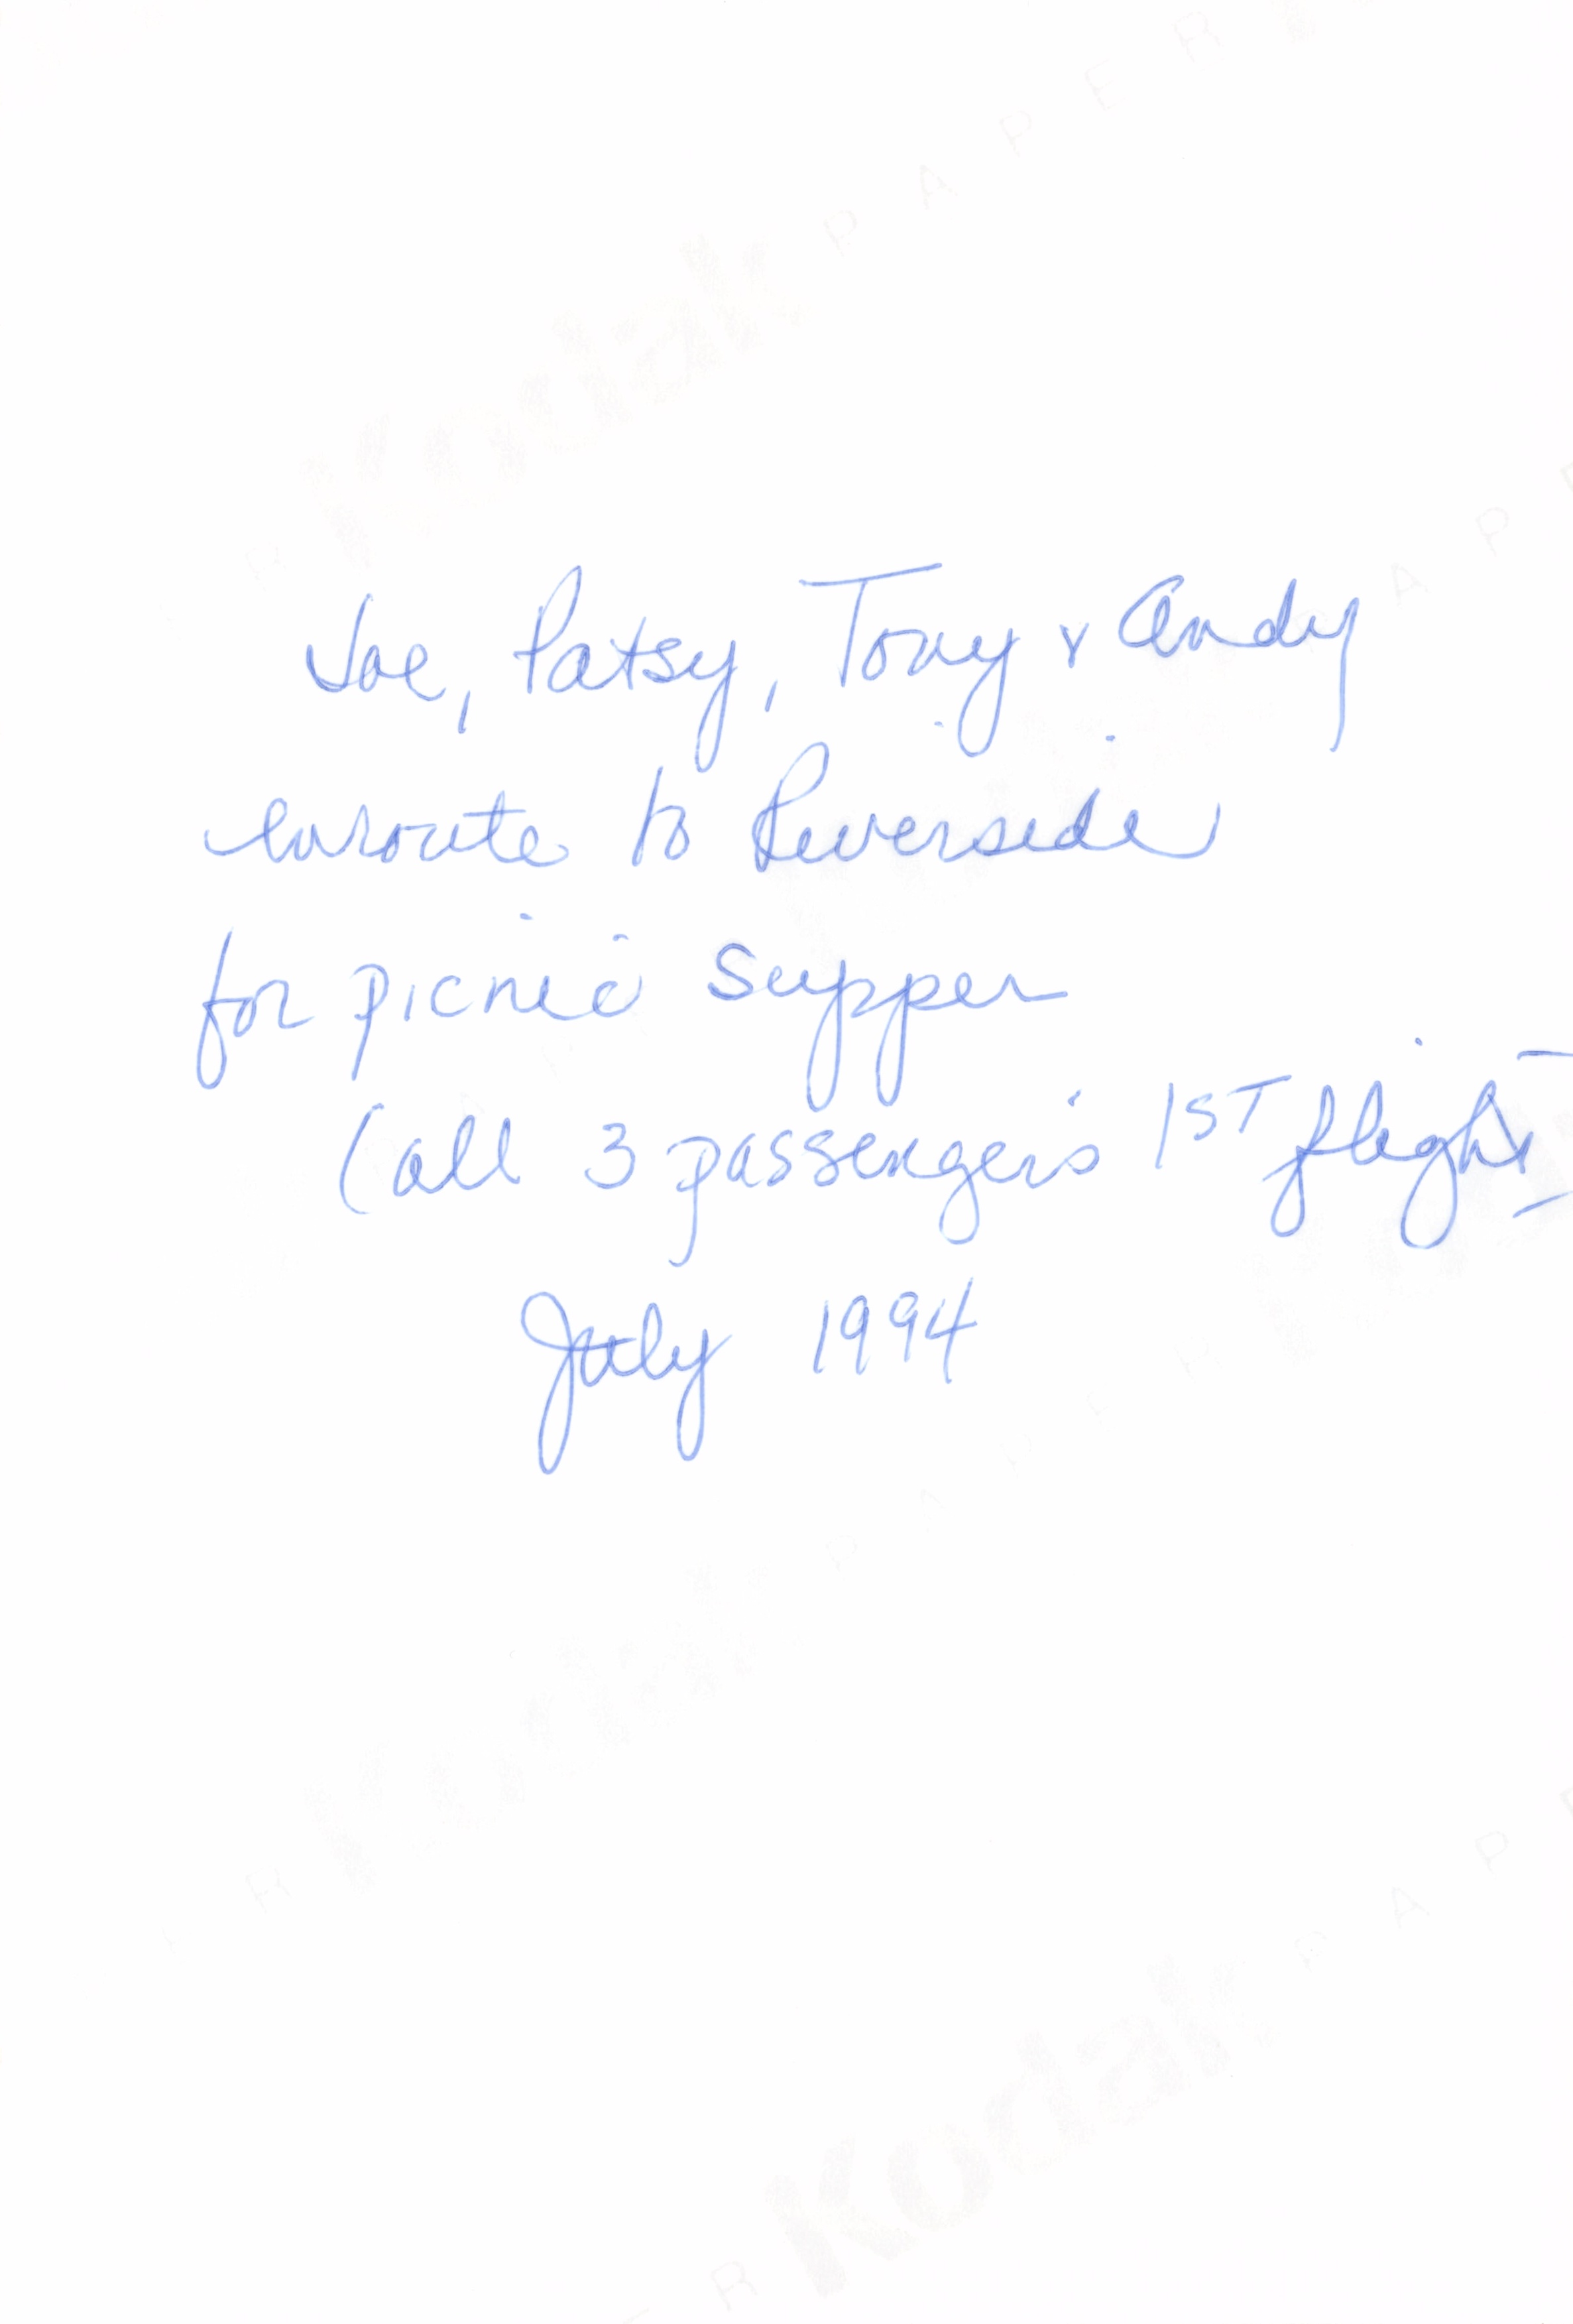 Joe, Patsy, Tony & Andy
enroute to Riverside
for picnic supper
(all 3 passengers 1ST flight
July 1994
Kodak
PAPER
Kodak